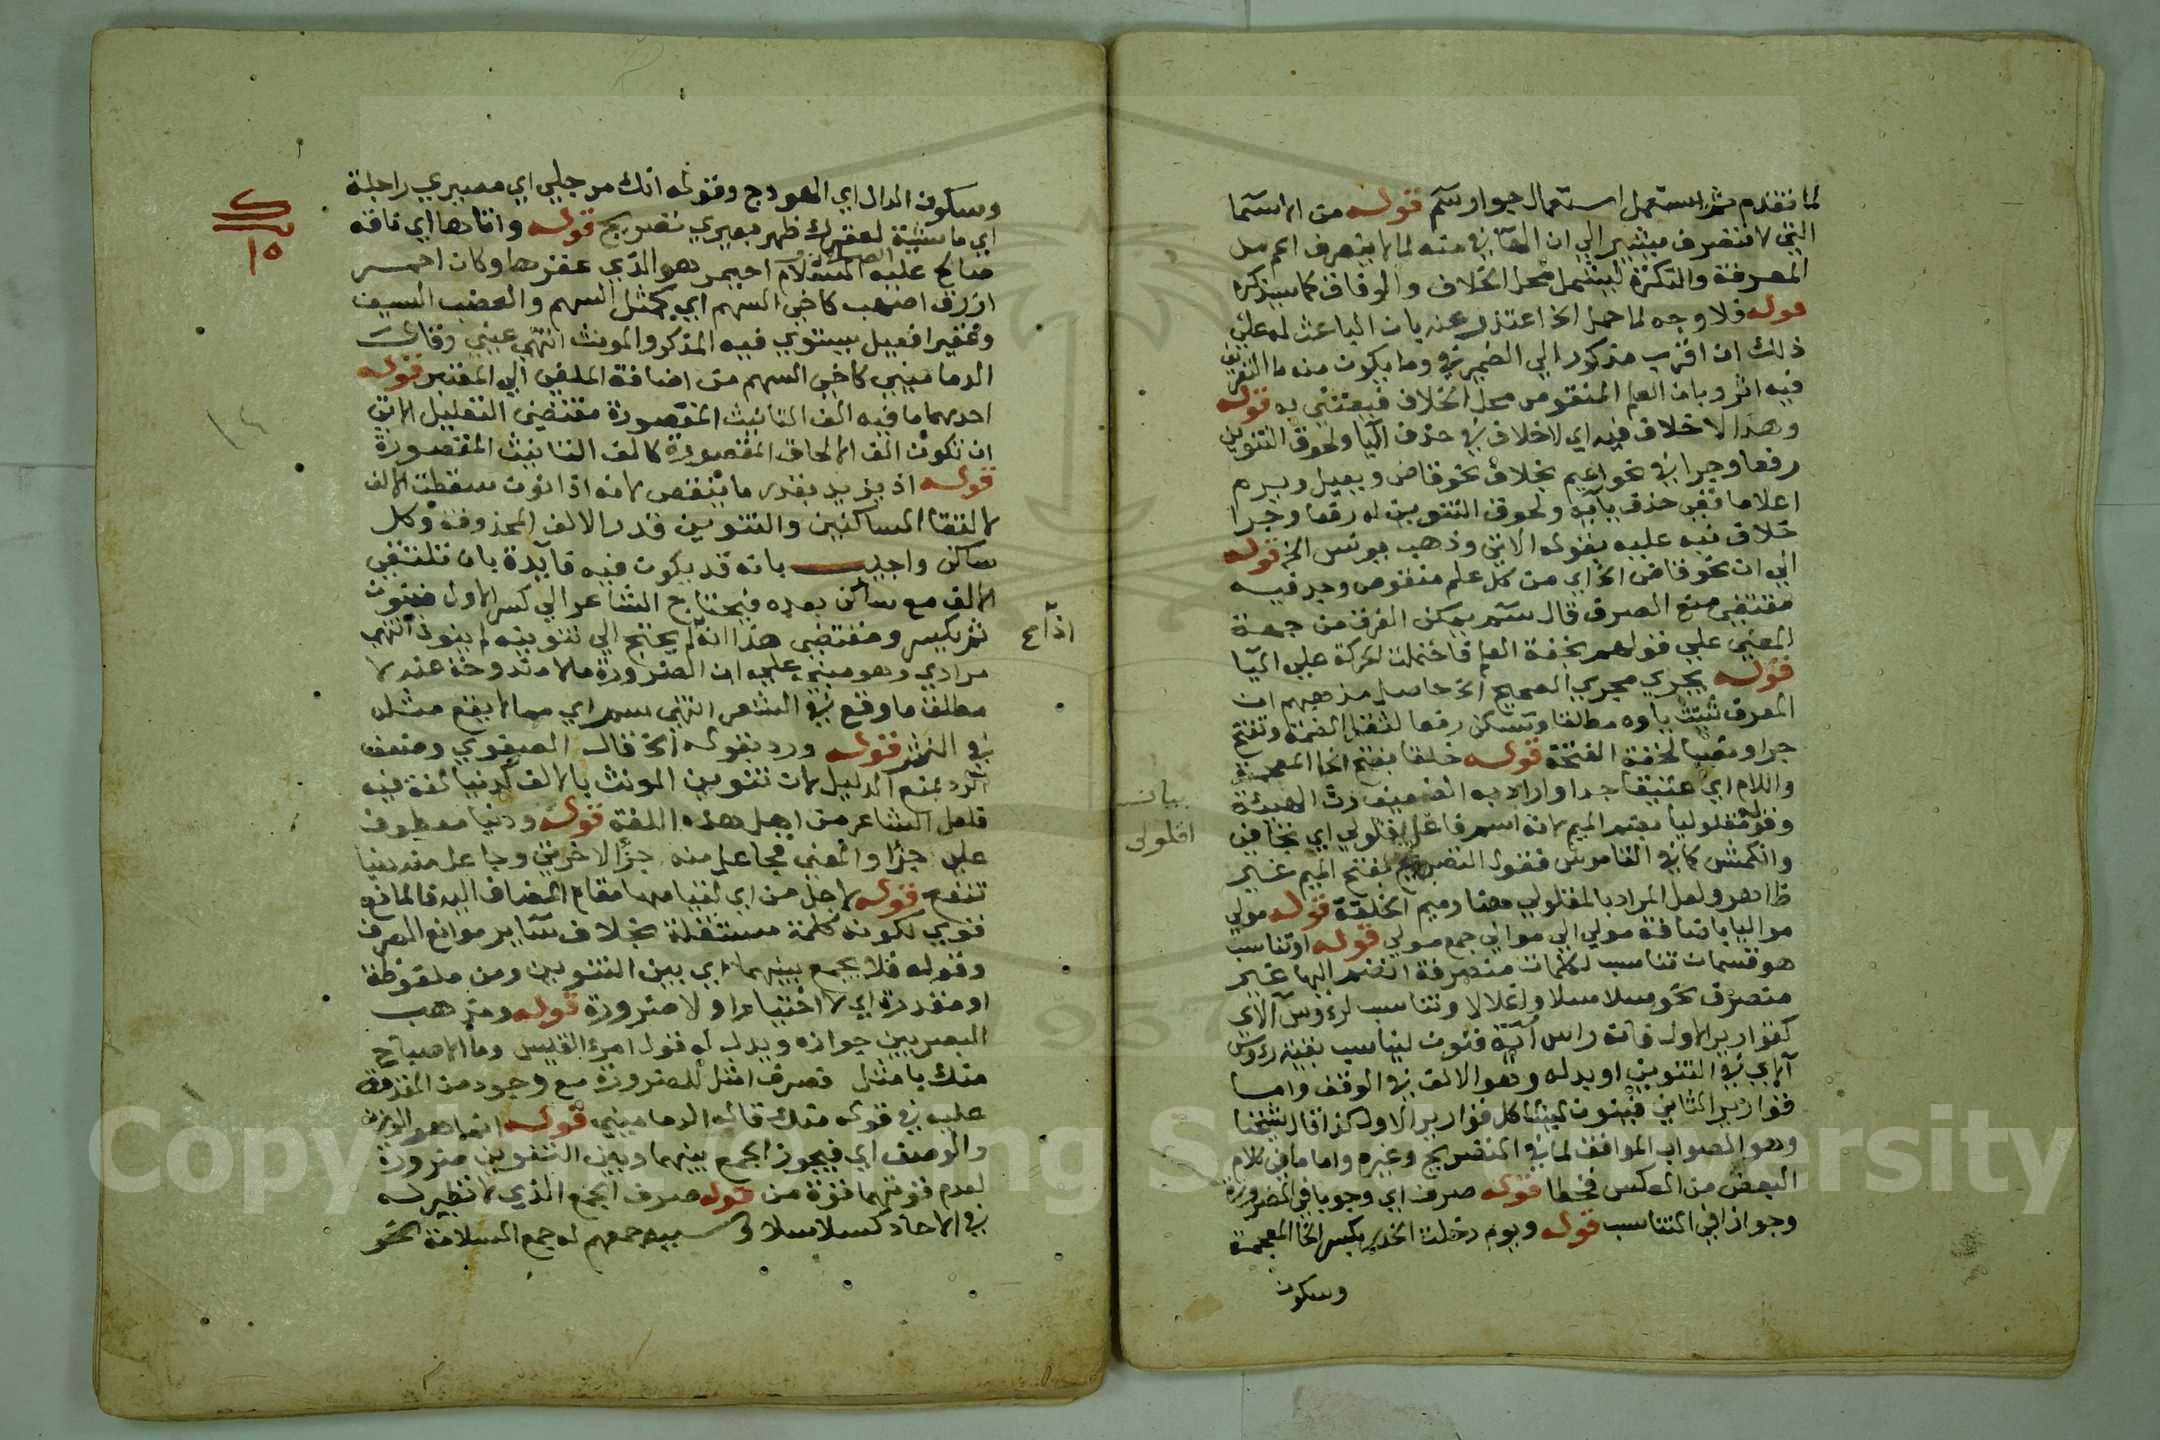 لما تقدم ثم استعمل استعمال جوار سم قوله من الاسما
التي لا تنصرف يشير الي ان الغاني منه لما لا ينصرف اعم من
المعرفة والنكرة ليشمل محل الخلاف والوفاق كما سيذكره
قوله فلا وجه لما حمل الخ اعتذر عنه بان الباعث له علي
ذلك ان اقرب مذكور الي الضمير في وما يكون منه ما التعريف
فيه اثر وبان العلم المنقوص محل الخلاف فيعتني به قوله
وهذا لا خلاف فيه اي لا خلاف في حذف اليا ولحوق التنوين
رفعا وجرا في نحو اعيم بخلاف نحو قاض ويعيل ويرم
اعلاما ففي حذف يائه ولحوق التنوين له رفعا وجرا
خلاف نبه عليه بقوله الاتي وذهب يونس الخ قوله
الي ان نحو قاض الخ اي من كل علم منقوص وجد فيه
مقتضي منع الصرف قال سم يمكن الفرق من جهة
المعني علي قولهم بخفة العلم فاحتملت الحركة علي اليا
قوله يجري مجري الصحيح الخ حاصل مذهبهم ان
المعرف تثبت ياوه مطلقا وتسكن رفعا لثقل الضمة وتفتح
جرا ونصبا لخفة الفتحة قوله خلقا بفتح الخا المعجمة
واللام اي عتيقا جدا واراد به الضعيف رث الهيئة
وقوله مقلوليا بضم الميم لانه اسم فاعل يقلولي اي تجافي
وانكمش كما في القاموس فقول التصريح بفتح الميم غير
ظاهر ولعل المراد بالمقلولي هنا دميم الخلقة قوله مولي
مواليا باضافة مولي الي موالي جمع مولي قوله او تناسب
هو قسمان تناسب لكلمات منصرفة انضم اليها غير
منصرف نحو سلاسلا واغلالا وتناسب لرءوس الآي
كقوارير الاول فانه راس آية فنون ليناسب بقية رءوس
آلاي في التنوين او بدله وهو الالف في الوقف واما
قوارير الثاني فينون ليشاكل قوارير الاول كذا قال شيخنا
وهو الصواب الموافق لما في التصريح وغيره واما ما في كلام
البعض من العكس فخطا قوله صرف اي وجوبا في الضرورة
وجوازا في التناسب قوله ويوم دخلت الخدر بكسر الخا المعجمة
وسكون
بيان
اقلولي
وسكون الدال اي الهودج وقوله انك مرجلي اي مصيري راجلة
اي ماشية لعقرك ظهر بعيري تصريح قوله واتاها اي ناقة
صالح عليه الصلاة والسلام احيمر هو الذي عقرها وكان احمر
ازرق اصهب كاخي السهم اي كمثل السهم والعضب السيف
وعقير فعيل يستوي فيه المذكر والمونث انتهي عيني وقال
الدماميني كاخي السهم من اضافة الملغي الي المعتبر قوله
احدهما ما فيه الف التانيث المقصورة مقتضي التعليل الاتي
ان تكون الف الالحاق المقصورة كالف التانيث المقصورة
قوله اذ يزيد بقدر ما ينقص لانه اذا نون سقطت الالف
لالتقا الساكنين والتنوين قدر الالف المحذوفة وكل
ساكن واجيب بانه قد يكون فيه فايدة بان تلتقي
الالف مع ساكن بعده فيحتاج الشاعر الي كسر الاول فينون
ثم يكسر ومقتضي هذا انه لم يحتج الي تنوينه لم ينون انتهي
مرادي وهو مبني علي ان الضرورة ما لا مندوحة عنه لا
مطلق ما وقع في الشعر انتهي سم اي مما لا يقع مثله
في النثر قوله ورد بقوله الخ قال الصفوي وضعف
الرد بمنع الدليل لان تنوين المونث بالالف كدنيا لغة فيه
فلعل الشاعر من اهل هذه اللغة قوله ودنيا معطوف
علي جزا والمعني فجاعل منه جزا لاخرتي وجاعل منه دنيا
تنفع قوله لاجل من اي لقيامها مقام المضاف اليه فالمانع
قوي لكونه كلمة مستقلة بخلاف ساير موانع الصرف
وقوله فلا يجمع بينهما اي بين التنوين ومن ملفوظة
او مقدرة اي لا اختيارا ولا ضرورة قوله ومذهب
البصريين جوازه ويدل له قول امرئ القيس وما الاصباح
منك بامثل فصرف امثل للضرورة مع وجود من المقدمة
عليه في قوله منك قاله الدماميني قوله انما هو الوزن
والوصف اي فيجوز الجمع بينهما وبين التنوين ضرورة
لعدم قوتهما قوة من قوله صرف الجمع الذي لا نظير له
في الاحاد كسلاسلا وسببه جمعهم له جمع السلامة نحو
اذا صح
١٥
١٤
Copyright © King Saud University
1957